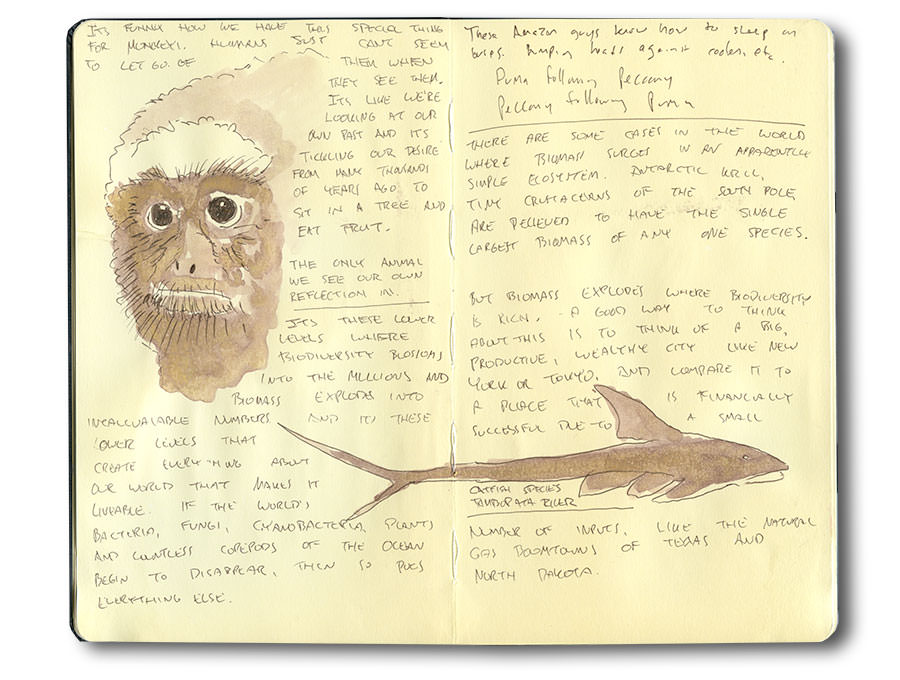 ITS FUNNY HOW WE HAVE THIS SPECIAL THING
FOR MONKEYS. HUMANS JUST CANT SEEM
TO LET GO OF THEM WHEN
THEY SEE THEM.
ITS LIKE WE'RE
LOOKING AT OUR
OWN PAST AND ITS
TICKLING OUR DESIRE
FROM MANY THOUSANDS
OF YEARS AGO TO
SIT IN A TREE AND
EAT FRUIT.
THE ONLY ANIMAL
WE SEE OUR OWN
REFLECTION IN.
ITS THESE LOWER
LEVELS WHERE
BIODIVERSITY BLOSSOMS
INTO THE MILLIONS AND
BIOMASS EXPLODES INTO
NUMBERS AND ITS THESE
LOWER LEVELS THAT
CREATE EVERYTHING ABOUT
OUR WORLD THAT MAKES IT
LIVEABLE. IF THE WORLD'S
BACTERIA, FUNGI, CYANOBACTERIA, PLANTS
AND COUNTLESS COPEPODS OF THE OCEAN
BEGIN TO DISAPPEAR, THEN SO DOES
EVERYTHING ELSE.
These Amazon guys know how to sleep on
bumping heads against coolers, etc.
Puma following Peccary
Peccary following Puma
THERE ARE SOME CASES IN THE WORLD
WHERE BIOMASS SURGES IN AN APPARENTLY
SIMPLE ECOSYSTEM. ANTARCTIC KRILL,
TINY CRUSTACEANS OF THE SOUTH POLE,
ARE BELIEVED TO HAVE THE SINGLE
LARGEST BIOMASS OF ANY ONE SPECIES.
BUT BIOMASS EXPLODES WHERE BIODIVERSITY
IS RICH. A GOOD WAY TO THINK
ABOUT THIS IS TO THINK OF A BIG,
PRODUCTIVE, WEALTHY CITY LIKE NEW
YORK OR TOKYO. AND COMPARE IT TO
A PLACE THAT IS FINANCIALLY
SUCCESSFUL DUE TO A SMALL
CATFISH SPECIES
TAMBOPATA RIVER
NUMBER OF INPUTS, LIKE THE NATURAL
GAS BOOMTOWNS OF TEXAS AND
NORTH DAKOTA.